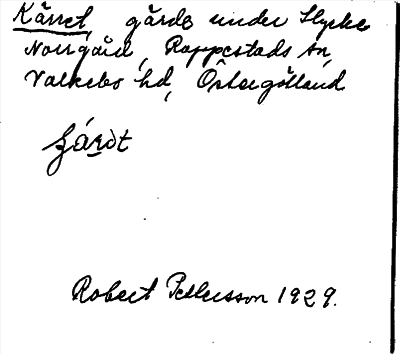 Kärret, gärde under Stycke
Norrgård, Rappestads sn,
Valkebo hd, Östergötland
Robert Pettersson 1929.